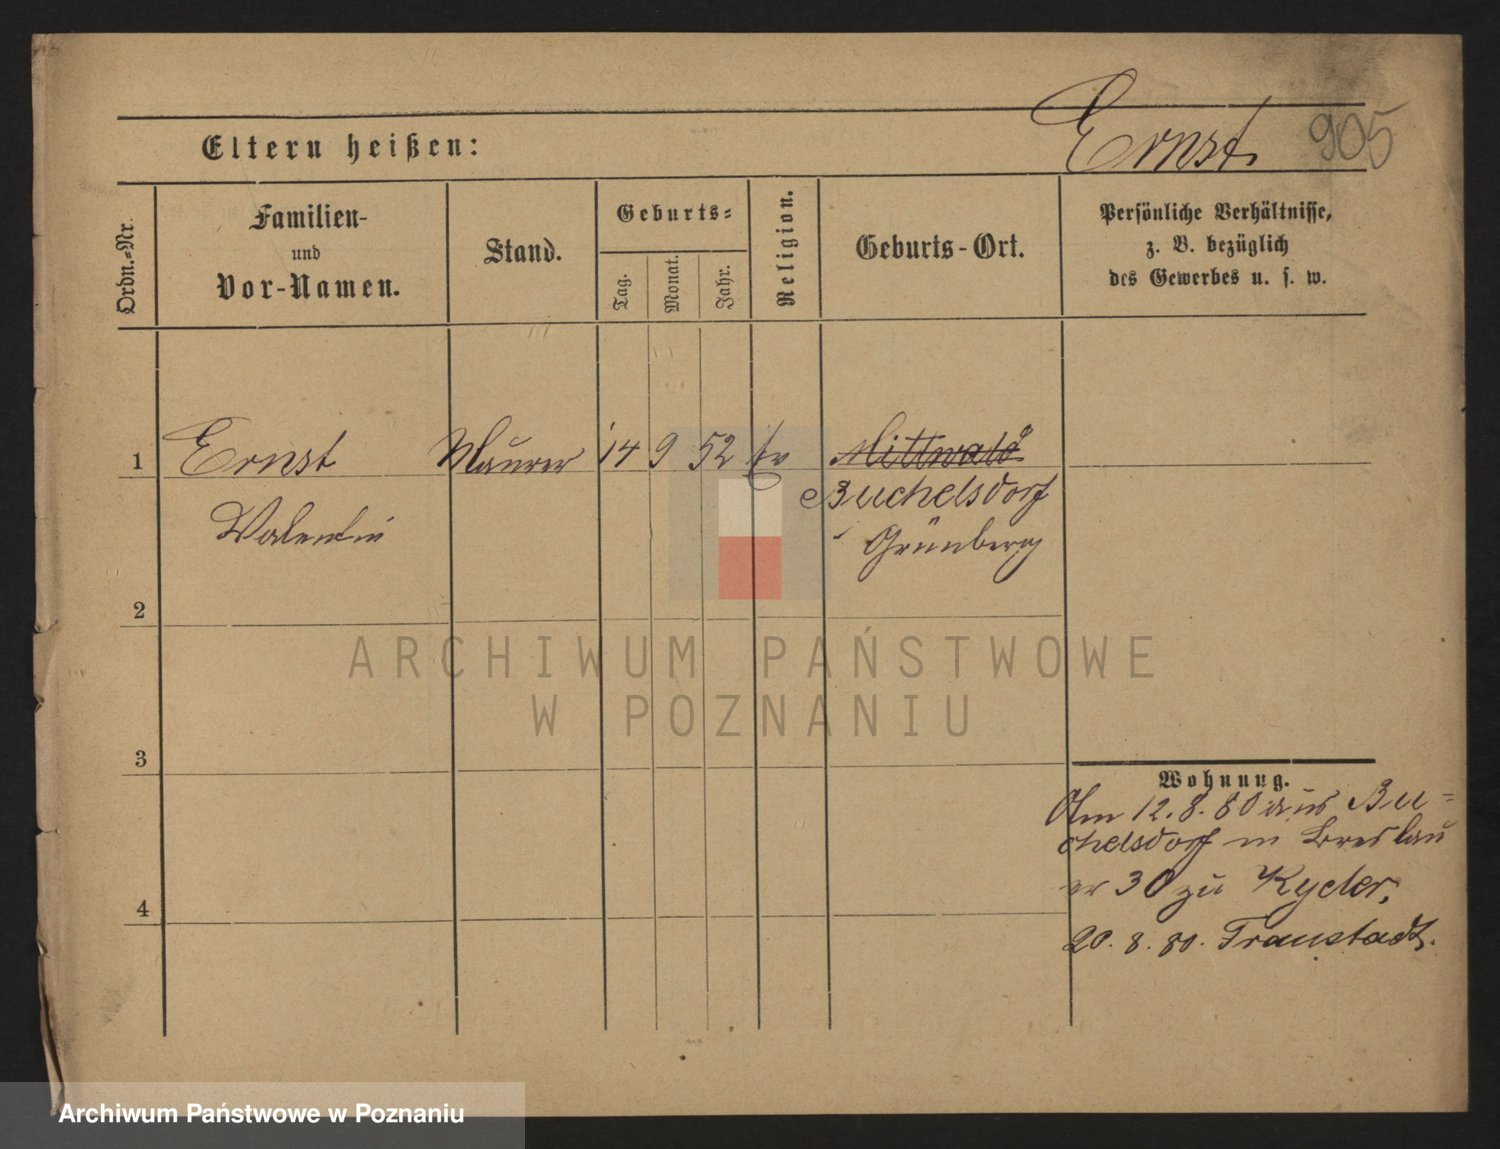 Eltern heißen:
Ernst 905
Ordn.-Nr.
Familien-
und
Vor-Namen.
Stand.
Geburts-
Tag.
Monat.
Jahr.
Religion.
Geburts-Ort.
Persönliche Verhältnisse,
z. B. bezüglich
des Gewerbes u. s. w.
1 Ernst Maurer 14 9 52 Ev Mittwald
Buchelsdorf
Valentin Grünberg
2
ARCHIWUM PAŃSTWOWE
W POZNANIU
3
Wohnung.
12.8.80 aus Bu-
chelsdorf in Breslau
er 30 zu Ryder,
4
20.8.80. Fraustadt.
Archiwum Państwowe w Poznaniu